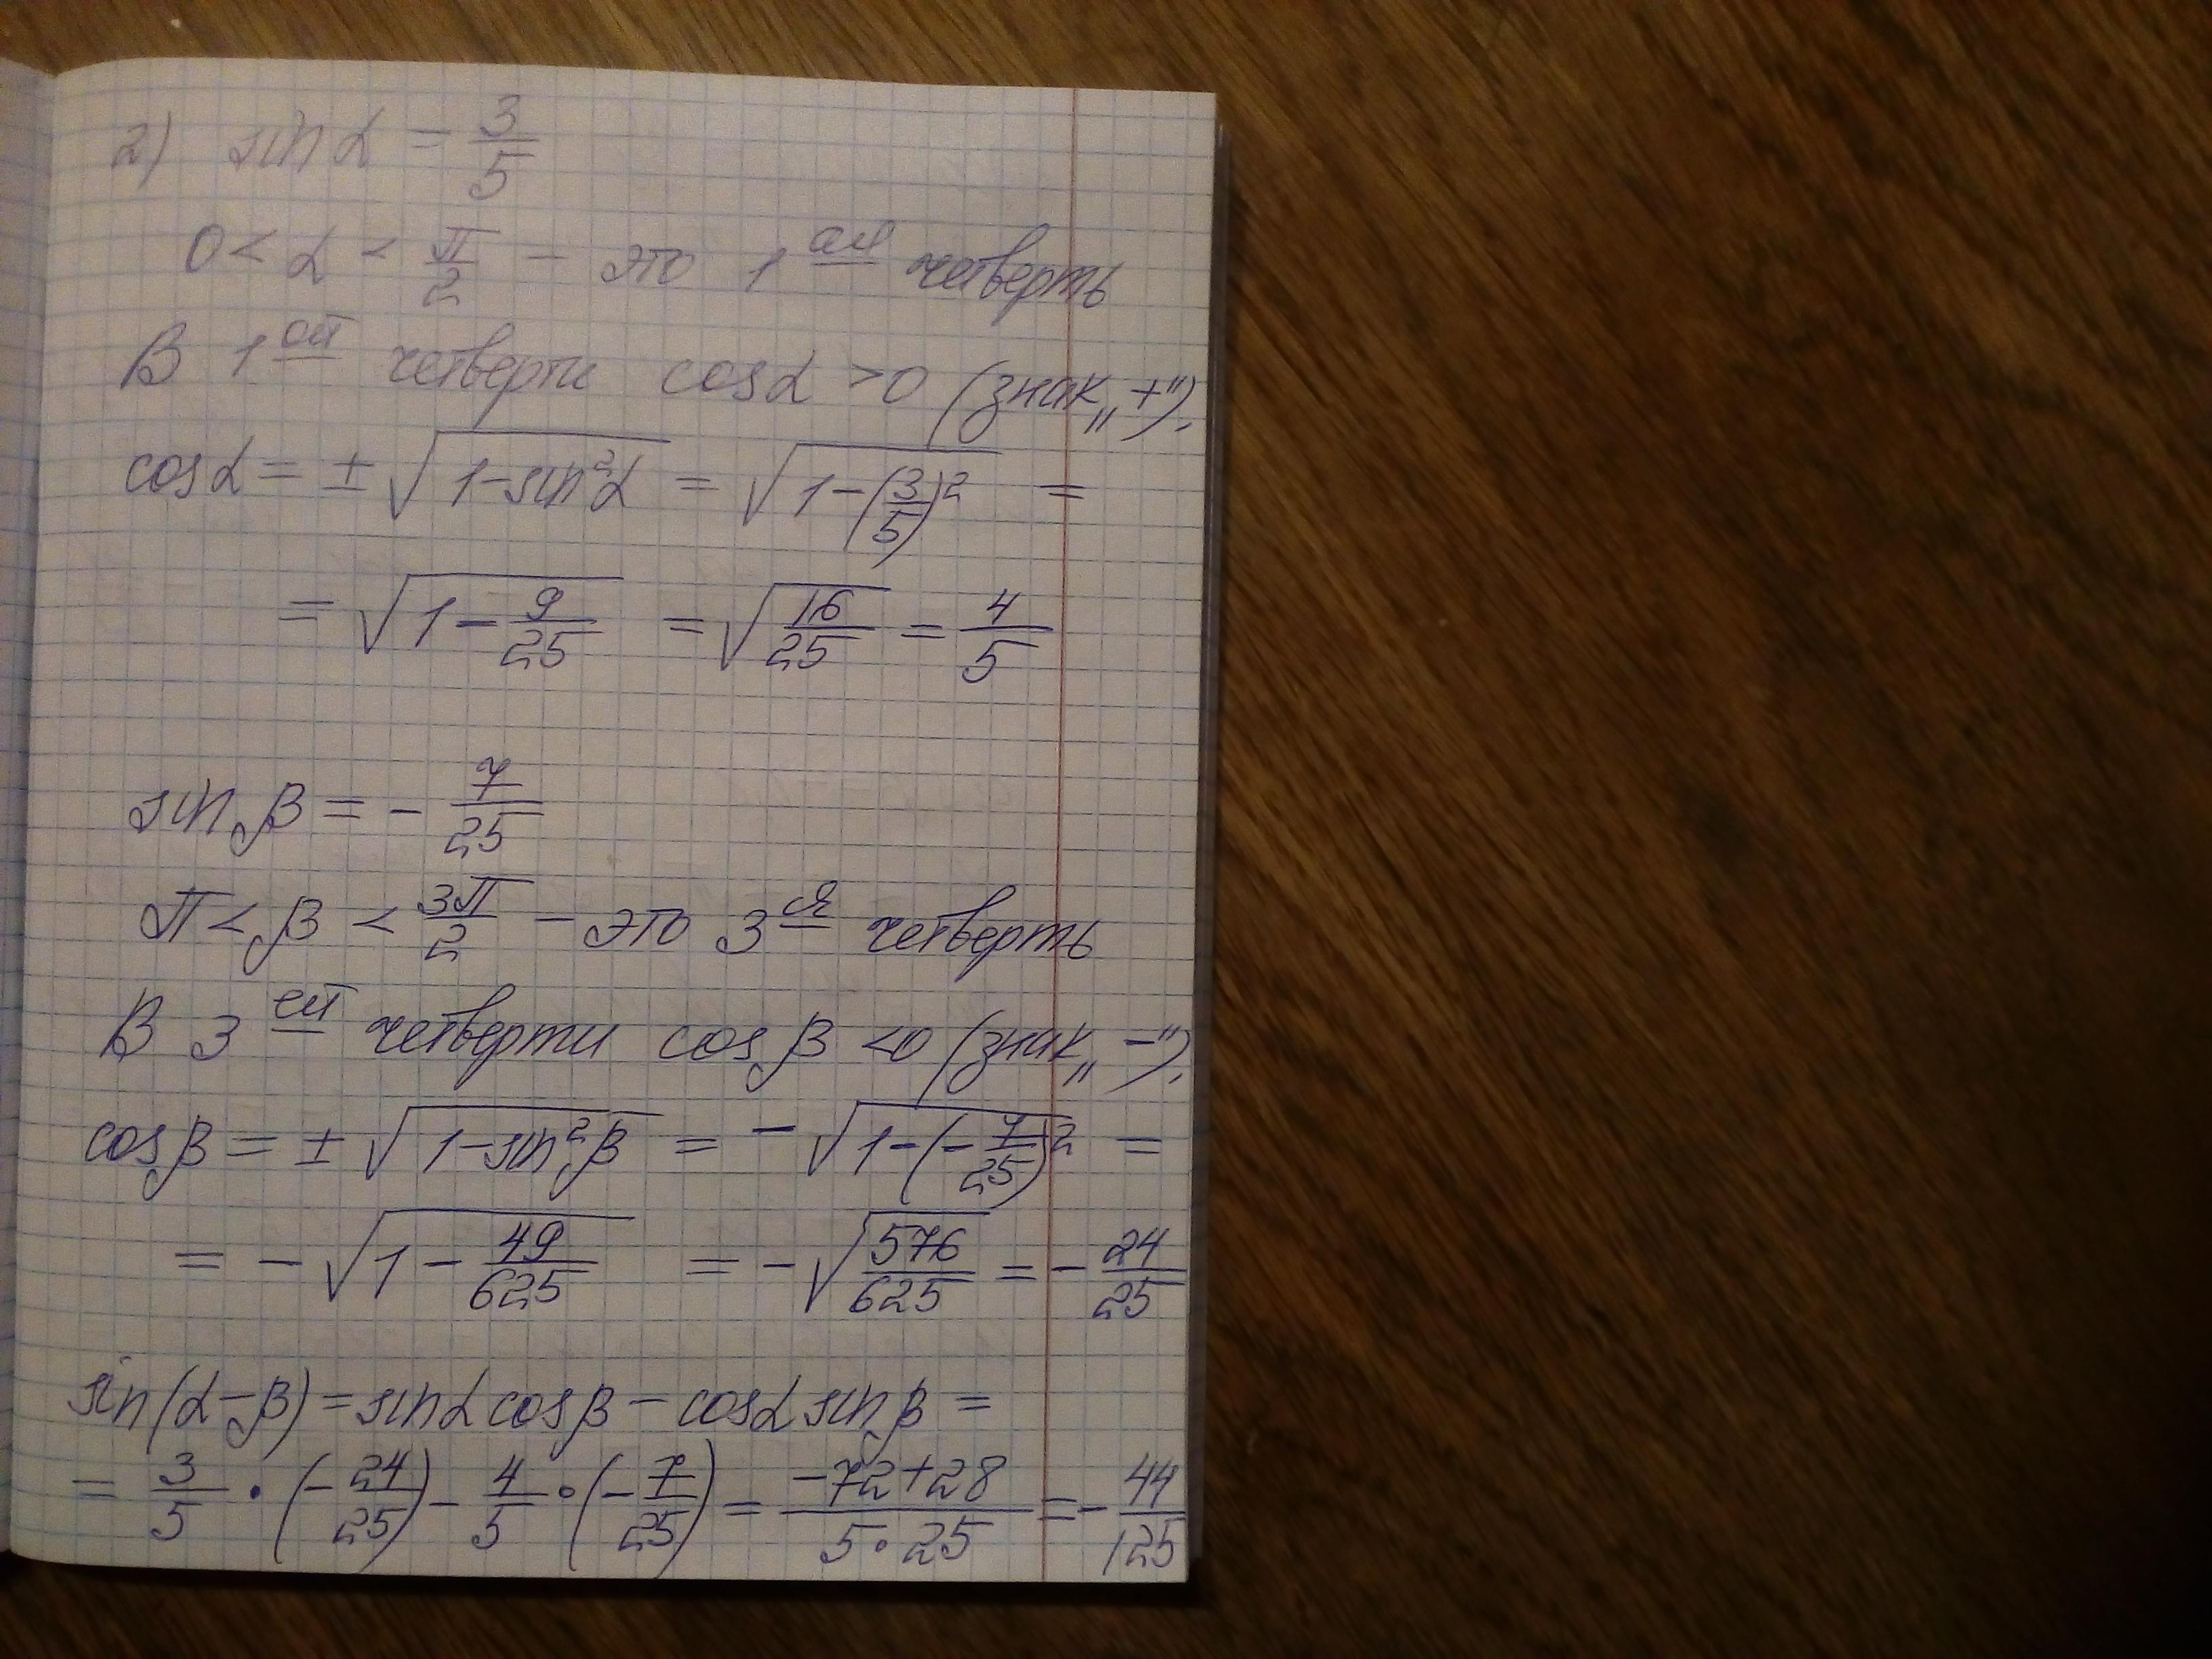 2) sin α = 3/5
0 < α < π/2 – это 1ая четверть
В 1ой четверти cos α > 0 (знак „+").
cos α = ± √(1-sin²α) = √(1-(3/5)²) =
= √(1 - 9/25) = √(16/25) = 4/5
sin β = - 7/25
π < β < 3π/2 – это 3я четверть
В 3ей четверти cos β < 0 (знак „-").
cos β = ± √(1-sin²β) = - √(1-(-7/25)²) =
= - √(1 - 49/625) = - √(576/625) = - 24/25
sin(α-β) = sin α cos β - cos α sin β =
= 3/5 • (- 24/25) - 4/5 • (- 7/25) = (-72+28)/(5•25) = - 44/125